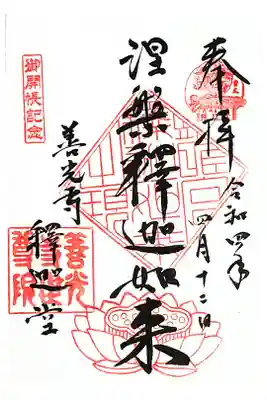 奉拝
令和四年
四月十二日
涅槃釋迦如来
善光寺
釋迦堂
御開帳記念